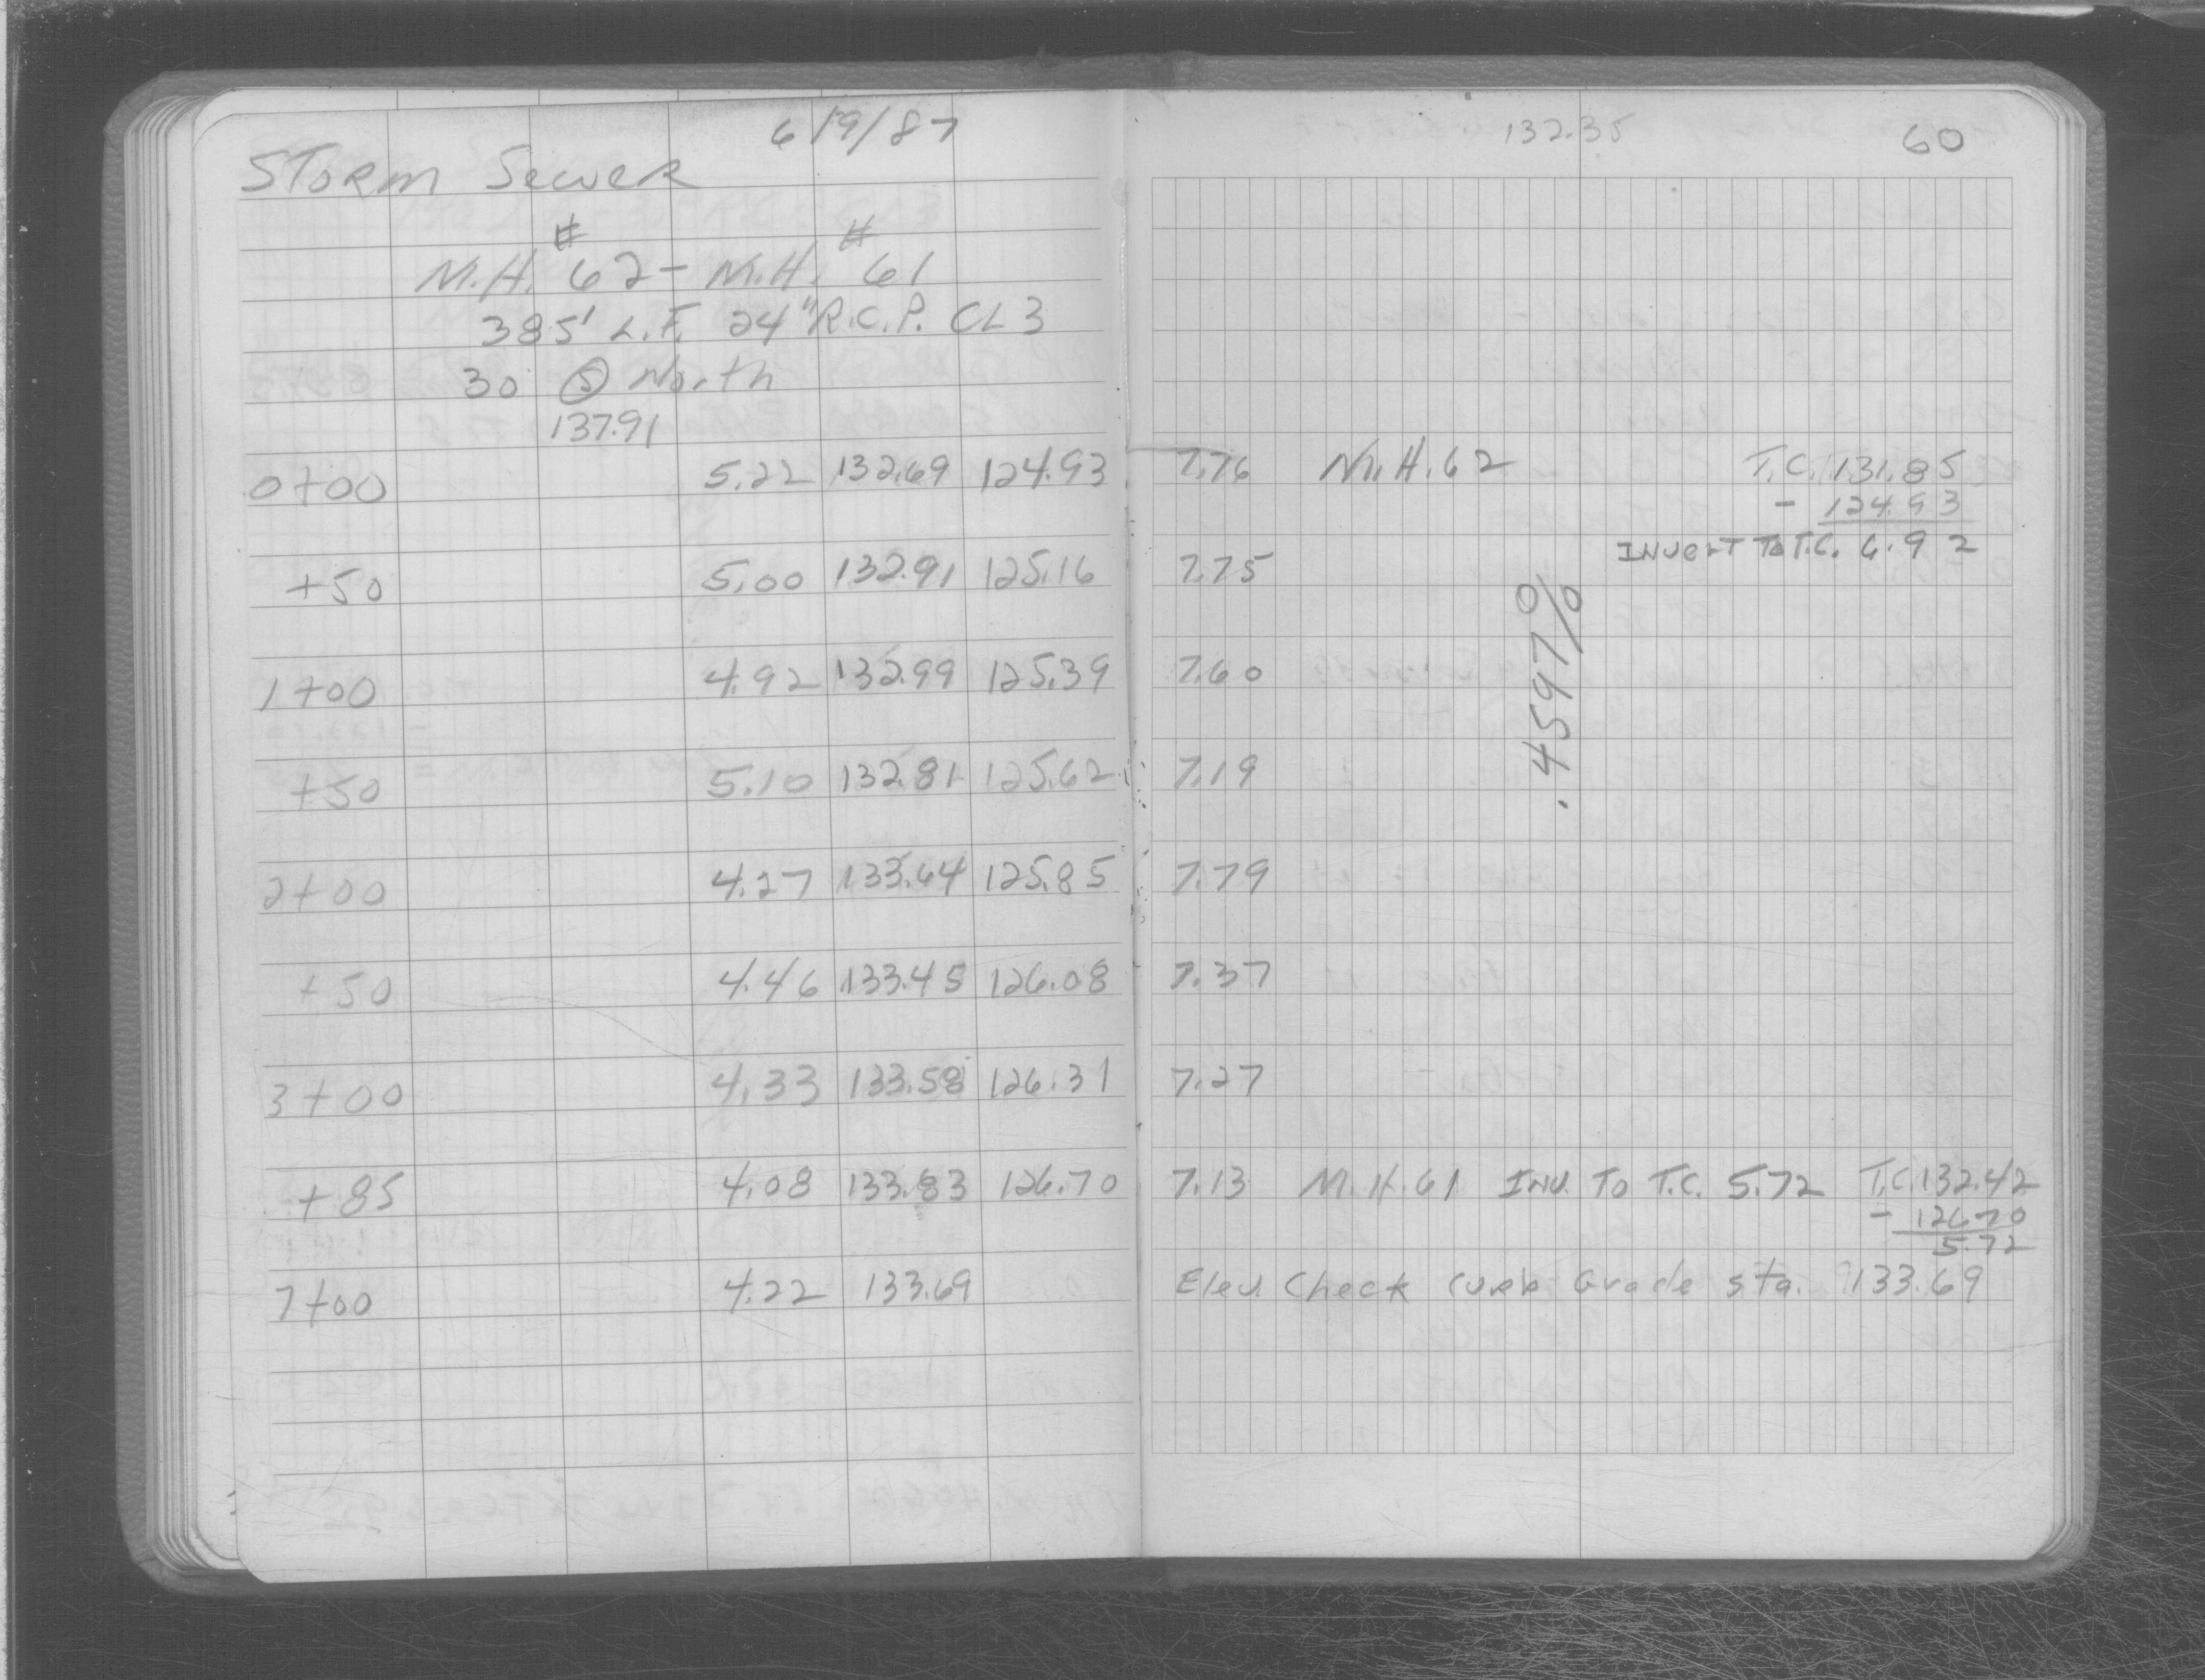 6/9/87
STORM Sewer
# #
M.H. 62 - M.H. 61
385' L.F. 24" R.C.P. CL 3
30 @ North
137.91
0+00 5.22 132.69 124.93
+50 5.00 132.91 125.16
1+00 4.92 132.99 125.39
+50 5.10 132.81 125.62
2+00 4.27 133.64 125.85
+50 4.46 133.45 126.08
3+00 4.33 133.58 126.31
+85 4.08 133.83 126.70
7+00 4.22 133.69
132.35 60
7.76 M.H. 62 T.C. 131.85
- 124.93
INVERT TO T.C. 6.92
7.75
7.60
.4597%
7.19
7.79
7.37
7.27
7.13 M.H. 61 INV. TO T.C. 5.72 T.C. 132.42
- 126.70
5.72
Elev. Check Curb Grade Sta. 133.69